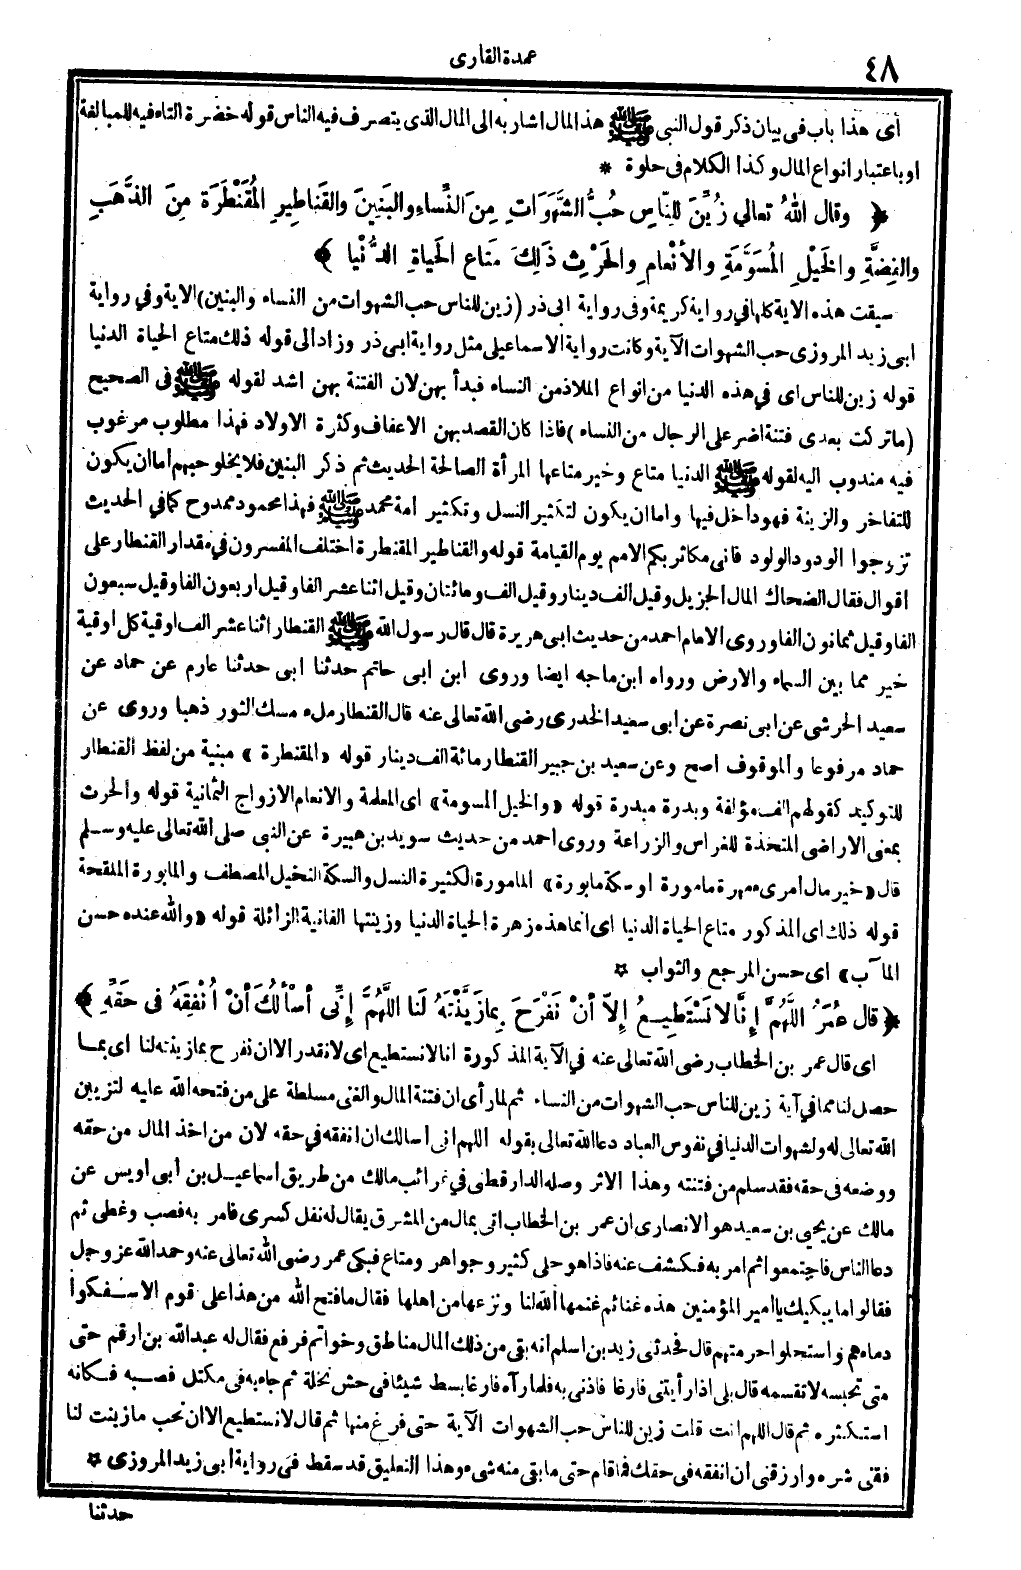 ٤٨
عمدة القارى
أى هذا باب فى بيان ذكر قول النبى ﷺ هذا المال اشار به الى المال الذى يتصرف فيه الناس قوله خضرة التاء فيه للمبالغة
او باعتبار انواع المال وكذا الكلام فى حلوة *
﴿ وقال اللهُ تعالي زُيِّنَ للنِّاسِ حُبُّ الشَّهَوَاتِ مِنَ النِّساءِ والبَنِينَ والقَناطِيرِ المُقَنْطَرَةِ مِنَ الذَّهَبِ
والفِضَّةِ والخَيْلِ المُسَوَّمَةِ والأنْعامِ والحَرْثِ ذَلِكَ مَتاع الحَياةِ الدُّنْيا ﴾
سيقت هذه الاية كلها فى رواية كريمة وفى رواية ابى ذر (زين للناس حب الشهوات من النساء والبنين) الاية وفي رواية
ابى زيد المروزى حب الشهوات الآية وكانت رواية الاسماعيلى مثل رواية ابى ذر وزاد الى قوله ذلك متاع الحياة الدنيا
قوله زين للناس اى في هذه الدنيا من انواع الملاذ من النساء فبدأ بهن لان الفتنة بهن اشد لقوله ﷺ فى الصحيح
(ماتركت بعدى فتنة اضر على الرجال من النساء) فاذا كان القصد بهن الاعفاف وكثرة الاولاد فهذا مطلوب مرغوب
فيه مندوب اليه لقوله ﷺ الدنيا متاع وخير متاعها المرأة الصالحة الحديث ثم ذكر البنين فلا يخلو حبهم اماان يكون
للتفاخر والزينة فهو داخل فيها واماان يكون لتكثير النسل وتكثير امة محمد ﷺ فهذا محمود ممدوح كما في الحديث
تزوجوا الودود الولود فانى مكاثر بكم الامم يوم القيامة قوله والقناطير المقنطرة اختلف المفسرون في مقدار القنطار على
اقوال فقال الضحاك المال الجزيل وقيل الف دينار وقيل الف ومائتان وقيل اثنا عشر الفا وقيل اربعون الفا وقيل سبعون
الفا وقيل ثمانون الفا وروى الامام احمد من حديث ابى هريرة قال قال رسول الله ﷺ القنطار اثنا عشر الف اوقية كل اوقية
خير مما بين السماء والارض ورواه ابن ماجه ايضا وروى ابن ابى حاتم حدثنا ابى حدثنا عارم عن حماد عن
سعيد الحرشى عن ابى نصرة عن ابى سعيد الخدرى رضى الله تعالى عنه قال القنطار ملء مسك الثور ذهبا وروى عن
حماد مرفوعا والموقوف اصح وعن سعيد بن جبير القنطار مائة الف دينار قوله «المقنطرة» مبنية من لفظ القنطار
للتوكيد كقولهم الف مؤلفة وبدرة مبدرة قوله «والخيل المسومة» اى المعلمة والانعام الازواج الثمانية قوله والحرث
بمعنى الاراضى المتخذة للغراس والزراعة وروى احمد من حديث سويد بن هبيرة عن النبى صلى الله تعالى عليه وسلم
قال «خير مال امرى مهرة مامورة او سكة مابورة» المامورة الكثيرة النسل والسكة النخيل المصطف والمابورة الملقحة
قوله ذلك اى المذكور متاع الحياة الدنيا اى انما هذه زهرة الحياة الدنيا وزينتها الفانية الزائلة قوله «والله عنده حسن
المآب» اى حسن المرجع والثواب *
﴿ قال عُمَرُ اللَّهُمَّ إنَّا لا نَسْتَطِيعُ إلاَّ أنْ نَفْرَحَ بِمازَيَّنْتَهُ لَنا اللَّهُمَّ إنِّى أسْألُكَ أنْ اُنْفِقَهُ فى حَقِّهِ ﴾
اى قال عمر بن الخطاب رضى الله تعالى عنه في الآية المذكورة انا لانستطيع اى لا نقدر الا ان نفرح بما زينته لنا اى بما
حصل لنا مما في آية زين للناس حب الشهوات من النساء ثم لما رأى ان فتنة المال والغنى مسلطة على من فتحه الله عليه لتزيين
الله تعالى له ولشهوات الدنيا في نفوس العباد دعا الله تعالى بقوله اللهم انى أسالك ان انفقه في حقه لان من اخذ المال من حقه
ووضعه فى حقه فقد سلم من فتنته وهذا الاثر وصله الدارقطنى في غرائب مالك من طريق اسماعيل بن أبى اويس عن
مالك عن يحيى بن سعيد هو الانصارى ان عمر بن الخطاب اتى بمال من المشرق يقال له نفل كسرى فامر به فصب وغطى ثم
دعا الناس فاجتمعوا ثم امر به فكشف عنه فاذا هو حلى كثير وجواهر ومتاع فبكى عمر رضى الله تعالى عنه وحمد الله عز وجل
فقالوا ما يبكيك يا امير المؤمنين هذه غنائم غنمها الله لنا ونزعها من اهلها فقال ما فتح الله من هذا على قوم الا سفكوا
دماءهم واستحلوا حرمتهم قال فحدثنى زيد بن اسلم انه بقى من ذلك المال مناطق وخواتم فرفع فقال له عبد الله بن ارقم حتى
متى تحبسه لا تقسمه قال بلى اذا رأيتنى فارغا فاذنى به فلما رآه فارغا بسط شيئا في حش نخلة ثم جاء به فى مكتل فصبه فكانه
استكثره ثم قال اللهم انت قلت زين للناس حب الشهوات الآية حتى فرغ منها ثم قال لا نستطيع الا ان نحب ما زينت لنا
فقنى شره وارزقنى ان انفقه فى حقك فما قام حتى ما بقى منه شىء وهذا التعليق قد سقط في رواية ابى زيد المروزى *
حدثنا